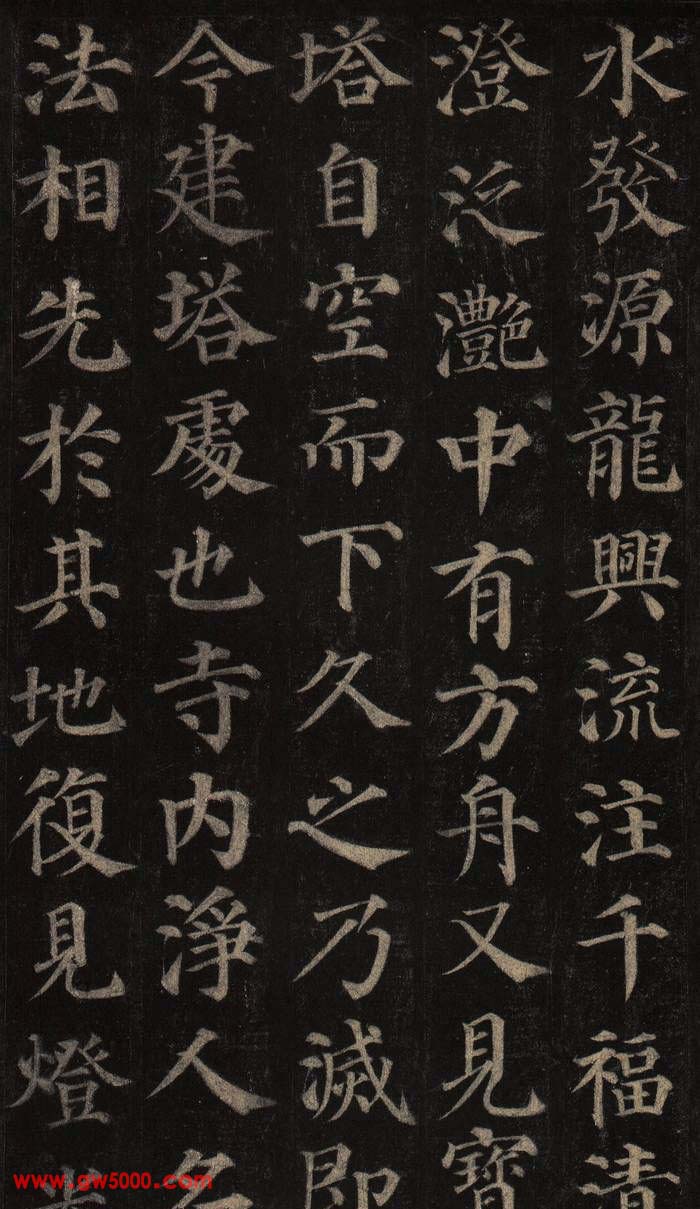 水發源龍興流注千福清
澄泛灧中有方舟又見寶
塔自空而下久之乃滅即
今建塔處也寺内淨人名
法相先於其地復見燈光
www.gw5000.com